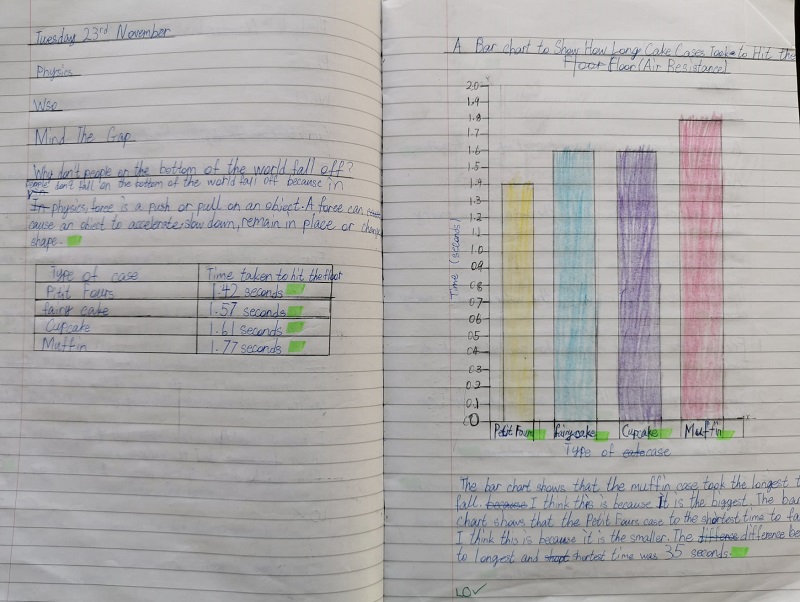 Tuesday 23rd November
Physics
Wso
Mind The Gap
Why don't people on the bottom of the world fall off?
People don't fall on the bottom of the world fall off because in
In physics, force is a push or pull on an object. A force can
cause an object to accelerate, slow down, remain in place or change
shape.
Type of case Time taken to hit the floor
Pitit Fours 1.42 seconds
fairy cake 1.57 seconds
Cupcake 1.61 seconds
Muffin 1.77 seconds
A Bar chart to Show How Long Cake Cases Took to Hit the
Floor Floor (Air Resistance)
Time (seconds)
2.0
1.9
1.8
1.7
1.6
1.5
1.4
1.3
1.2
1.1
1.0
0.9
0.8
0.7
0.6
0.5
0.4
0.3
0.2
0.1
0
Petit Fours fairy cake Cupcake Muffin
Type of case
The bar chart shows that the muffin case took the longest t
fall. because I think this is because it is the biggest. The bar
chart shows that the Petit Fours case to the shortest time to fa
I think this is because it is the smaller. The difference be
to longest and shortest time was 35 seconds.
LO✓